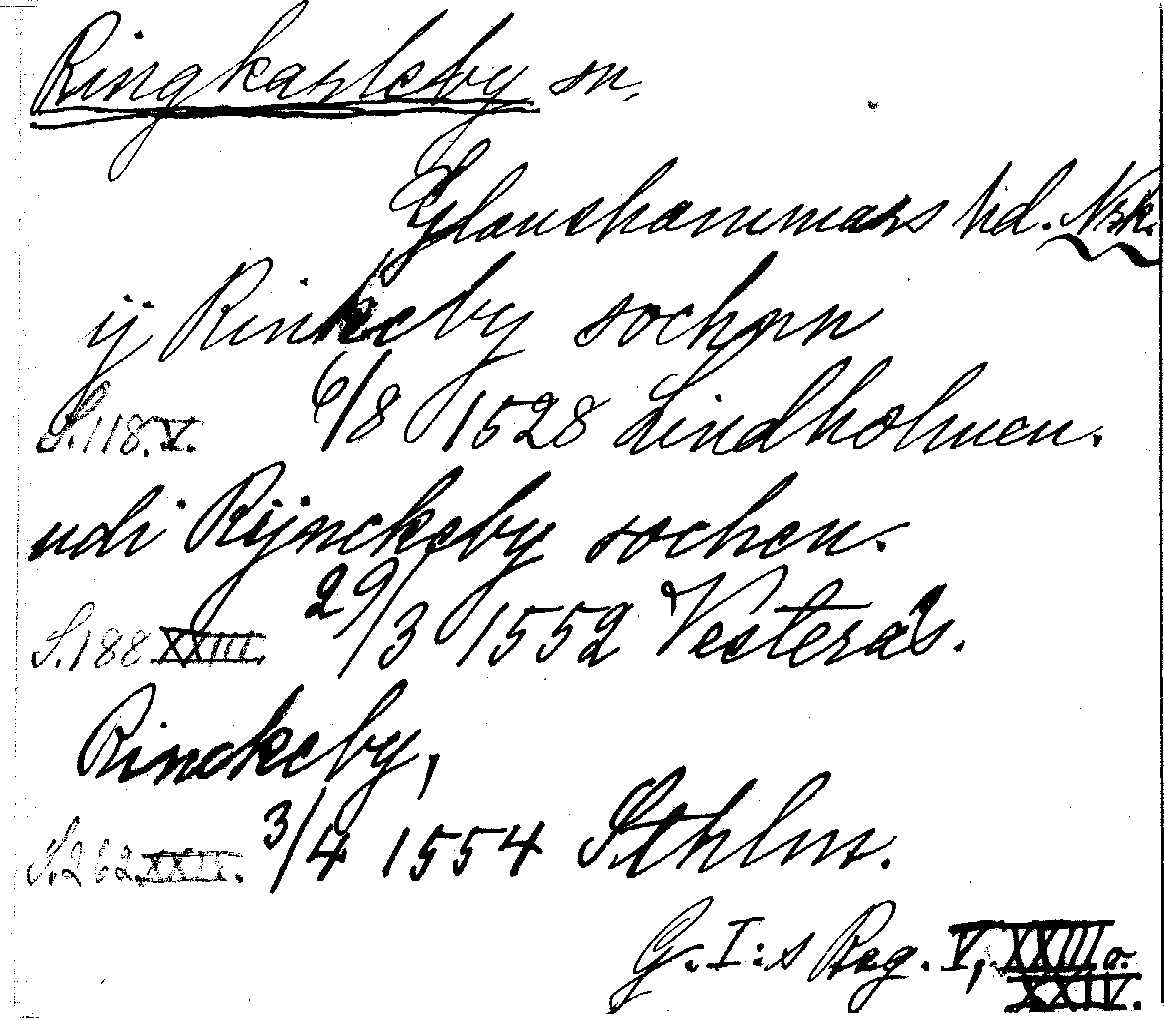 Ringkarleby sn,
Glanshammars hd. Nrk.
ij Rinkeby sochnn
S.118.V. 6/8 1528 Lindholmen.
udi Rijnckeby sochen.
S.188 XXIII. 29/3 1552 Vesterås.
Rinckeby,
S.262 XXIV. 3/4 1554 Sthlm.
G. I:s Reg. V, XXIII o.
XXIV.